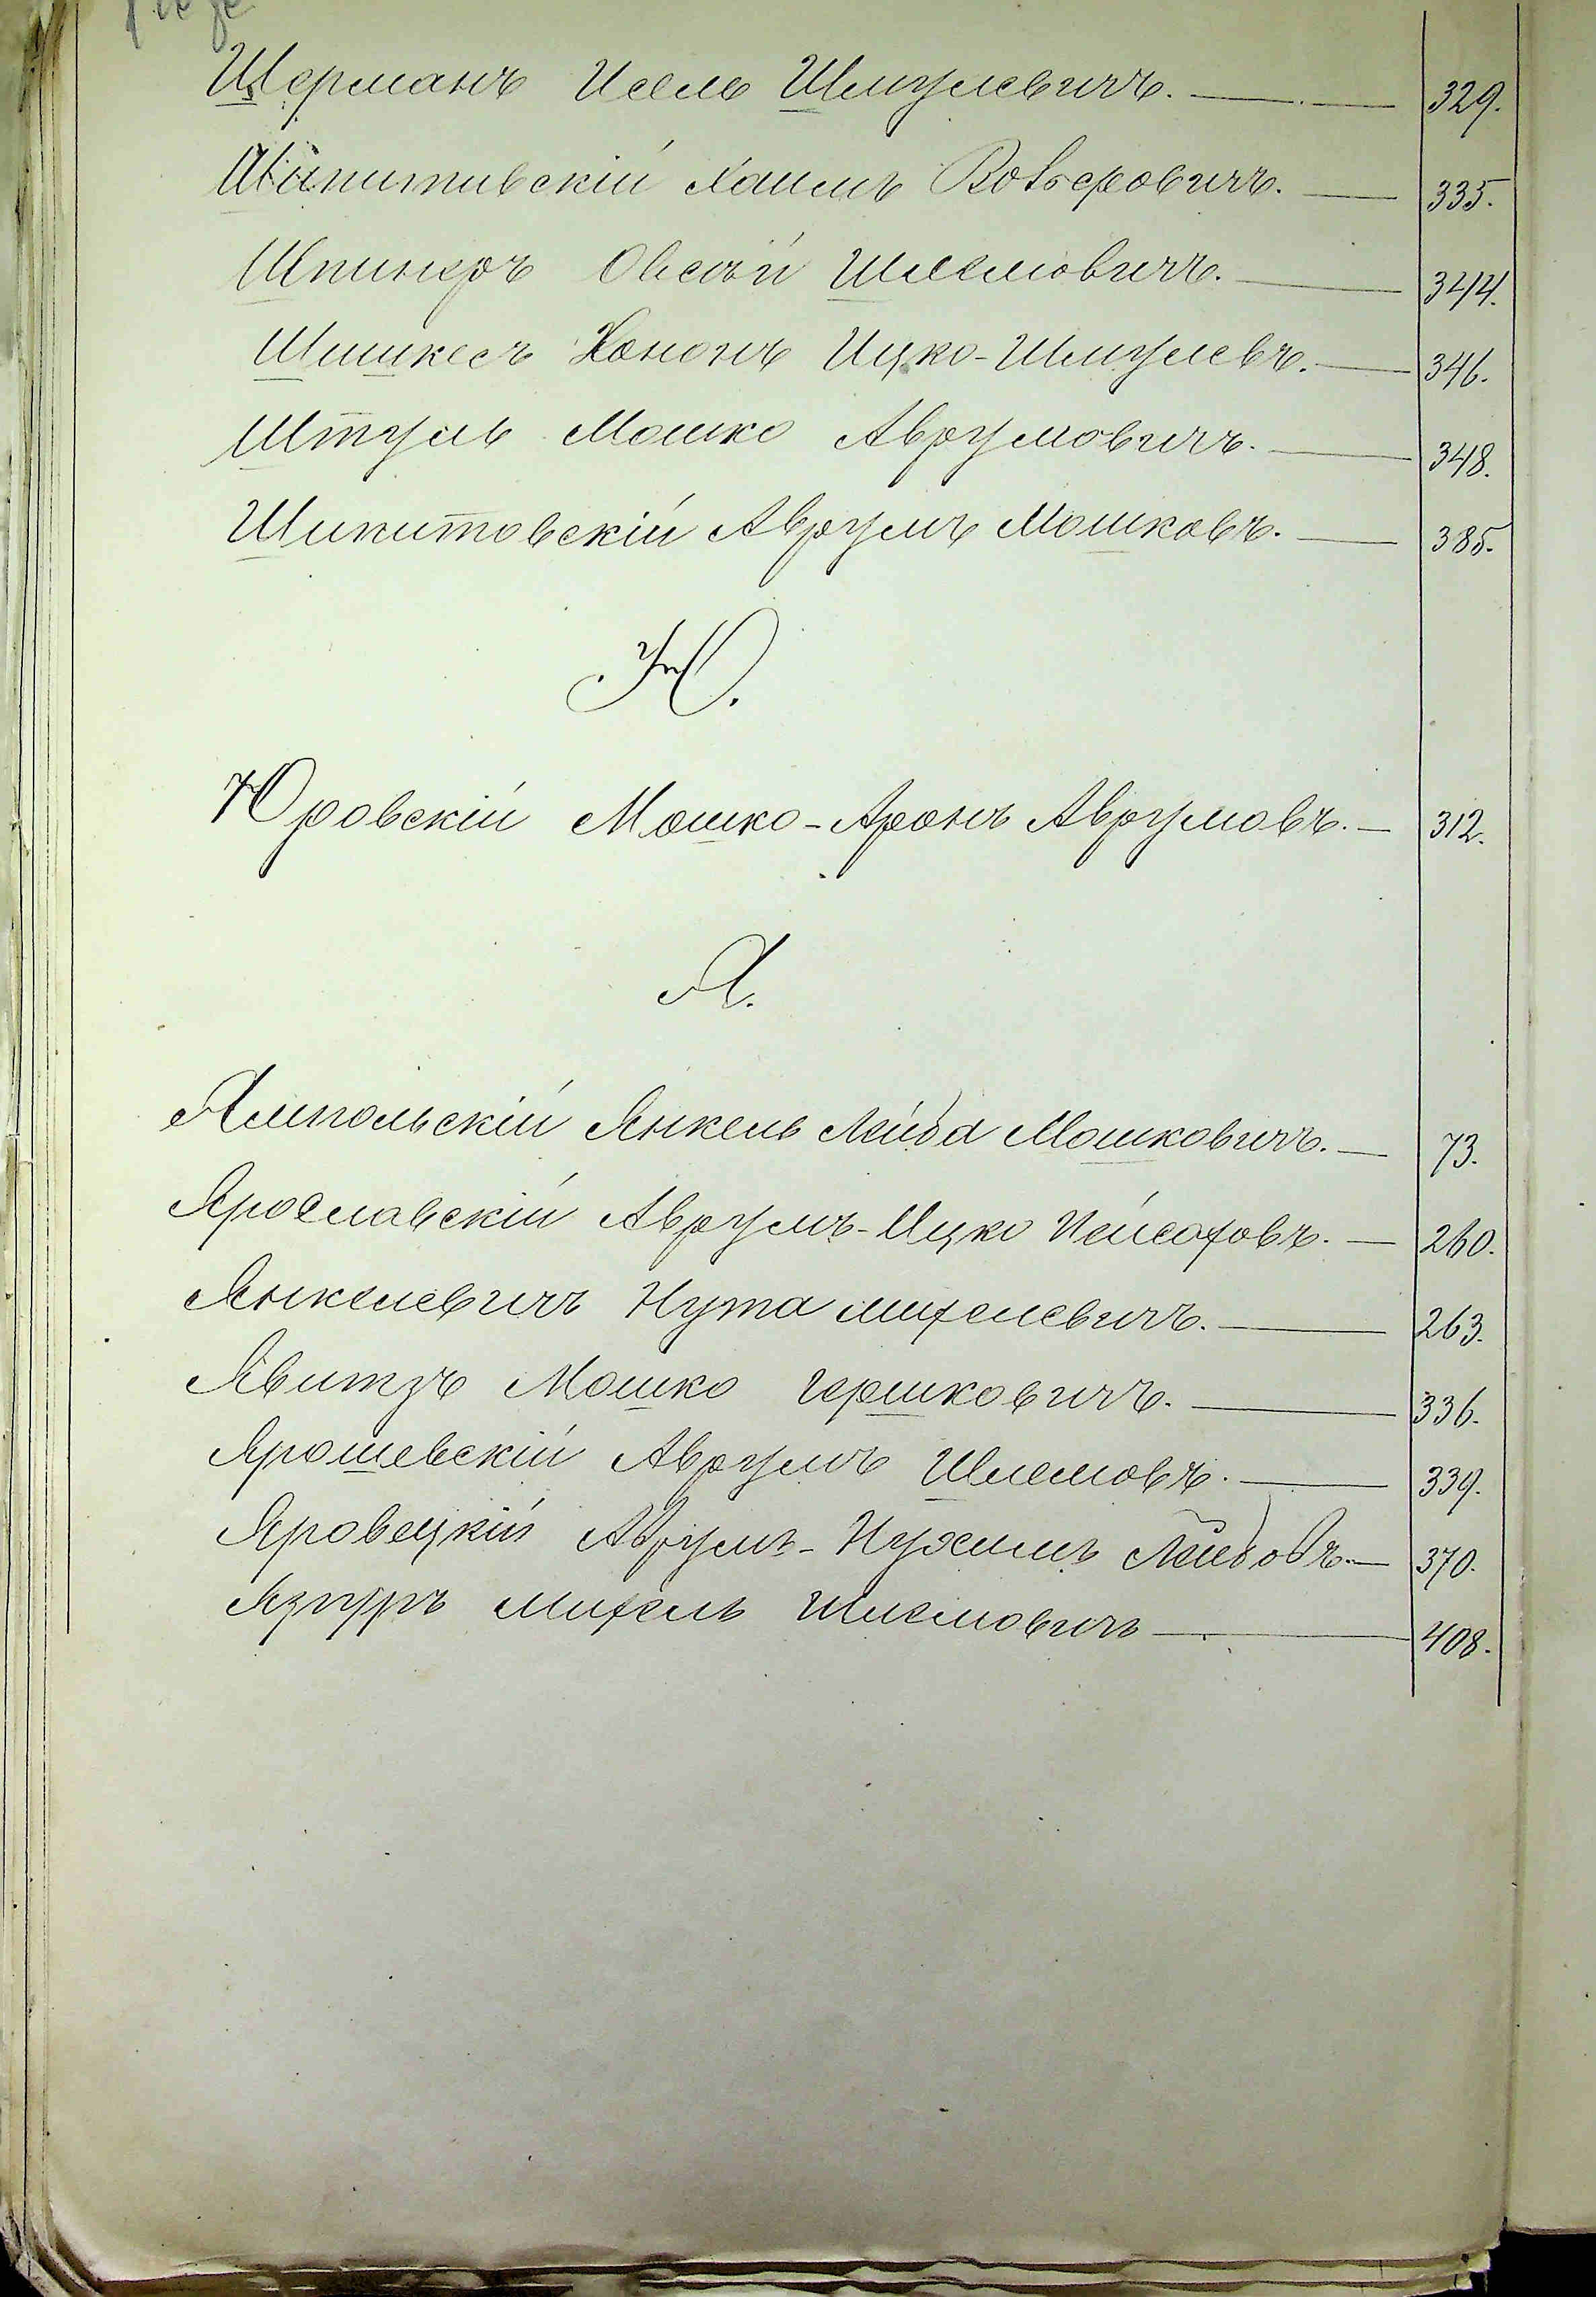 Шерманъ Исель Шмулевичъ. 329.
Шпитивскій Хаимъ Вольфовичъ. 335.
Шпинеръ Овсѣй Шлемовичъ. 344.
Шишкесъ Хононъ Ицко-Шмулевъ. 346.
Штуль Мошко Аврумовичъ. 348.
Шипитовскій Аврумъ Мошковъ. 385.
Ю.
Юровскій Мошко-Аронъ Аврумовъ. 312.
Я.
Ямпольскій Янкель Лейба Мошковичъ. 73.
Ярославскій Аврумъ-Ицко Пейсаховъ. 260.
Янкелевичъ Нута Михелевичъ. 263.
Явитзъ Мошко Гершковичъ. 336.
Ярошевскій Аврумъ Шлемовъ. 339.
Яровецкій Аврумъ-Нухимъ Лейбовъ. 370.
Михель Шлемовичъ 408.